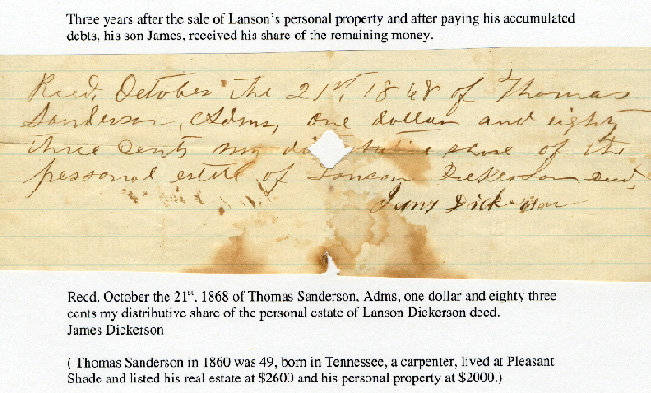 Three years after the sale of Lanson's personal property and after paying his accumulated
debts, his son James, received his share of the remaining money.
Recd. October the 21st, 1868 of Thomas
Sanderson, Adms, one dollar and eighty
three cents my share of the
personal estate of Lanson Dickerson decd.
James Dickerson
Recd. October the 21st, 1868 of Thomas Sanderson, Adms, one dollar and eighty three
cents my distributive share of the personal estate of Lanson Dickerson deed.
James Dickerson
( Thomas Sanderson in 1860 was 49, born in Tennessee, a carpenter, lived at Pleasant
Shade and listed his real estate at $2600 and his personal property at $2000.)